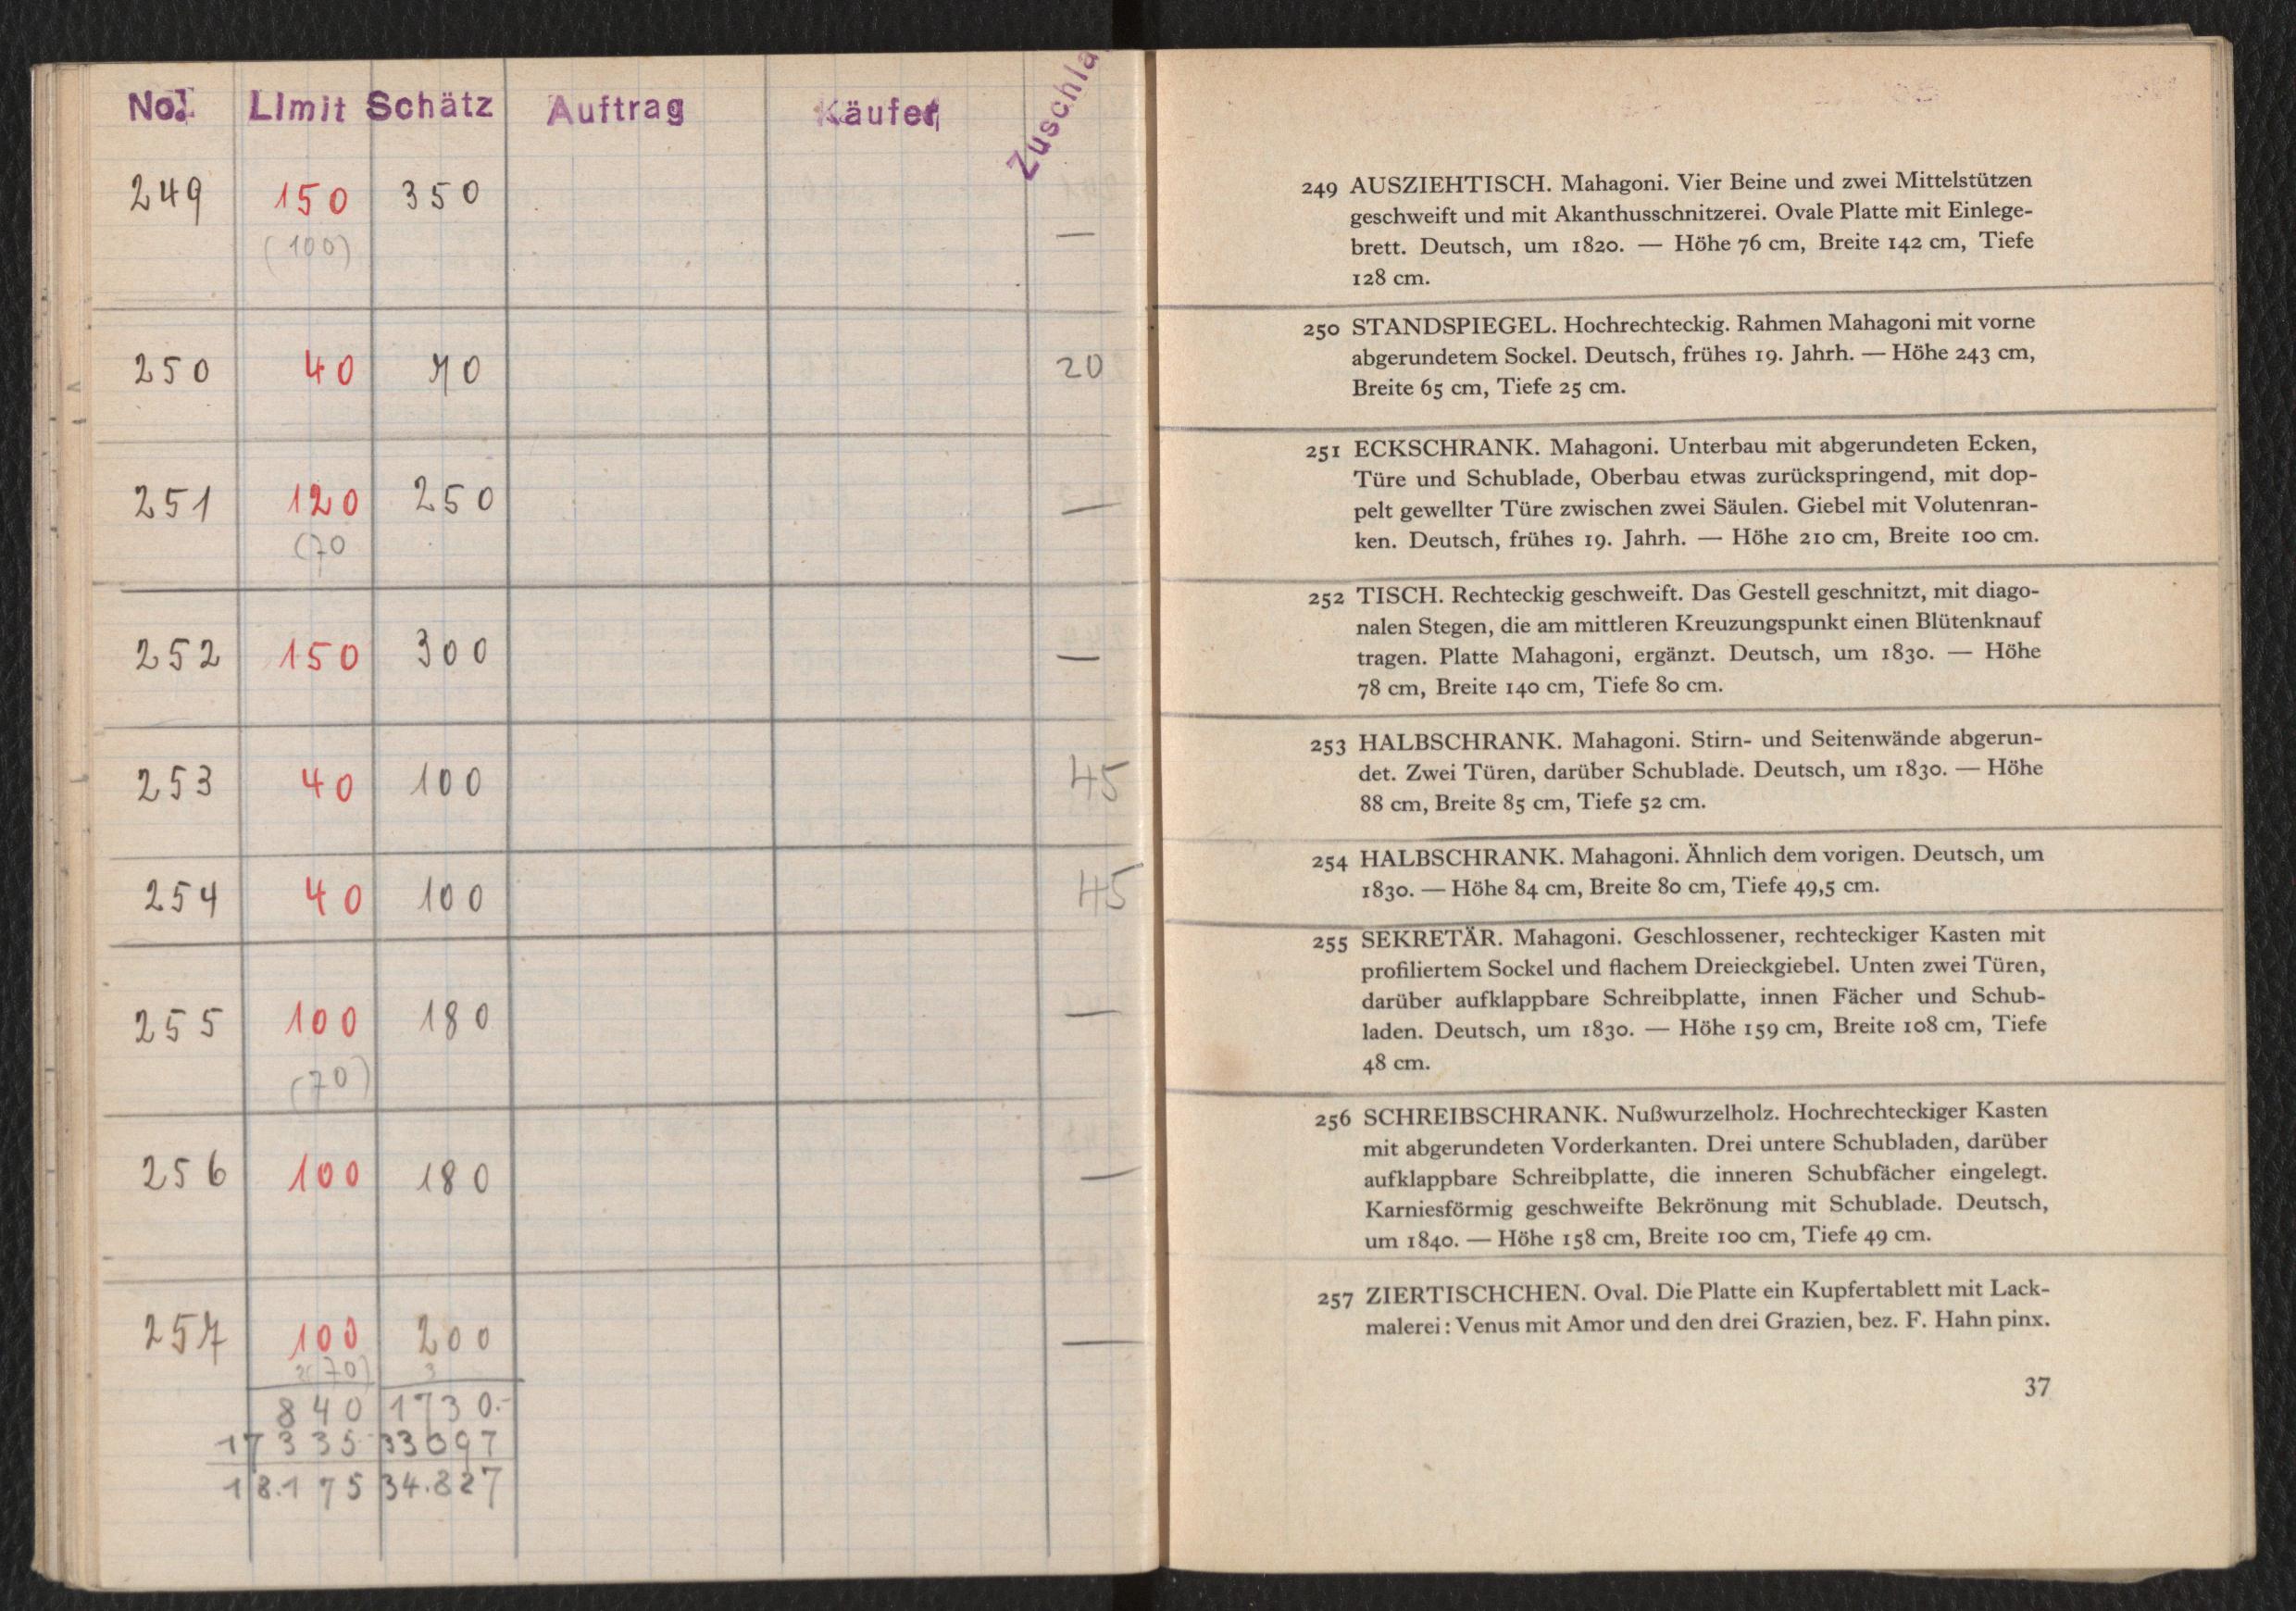 No. Limit Schätz Auftrag Käufer Zuschla
249 150 350
(100) —
250 40 70 20
251 120 250 —
(70
252 150 300 —
253 40 100 45
254 40 100 45
255 100 180 —
(70)
256 100 180 —
257 100 200 —
(70) 3
840 1730.-
17335 33097
18.175 34.827
249 AUSZIEHTISCH. Mahagoni. Vier Beine und zwei Mittelstützen
geschweift und mit Akanthusschnitzerei. Ovale Platte mit Einlege-
brett. Deutsch, um 1820. — Höhe 76 cm, Breite 142 cm, Tiefe
128 cm.
250 STANDSPIEGEL. Hochrechteckig. Rahmen Mahagoni mit vorne
abgerundetem Sockel. Deutsch, frühes 19. Jahrh. — Höhe 243 cm,
Breite 65 cm, Tiefe 25 cm.
251 ECKSCHRANK. Mahagoni. Unterbau mit abgerundeten Ecken,
Türe und Schublade, Oberbau etwas zurückspringend, mit dop-
pelt gewellter Türe zwischen zwei Säulen. Giebel mit Volutenran-
ken. Deutsch, frühes 19. Jahrh. — Höhe 210 cm, Breite 100 cm.
252 TISCH. Rechteckig geschweift. Das Gestell geschnitzt, mit diago-
nalen Stegen, die am mittleren Kreuzungspunkt einen Blütenknauf
tragen. Platte Mahagoni, ergänzt. Deutsch, um 1830. — Höhe
78 cm, Breite 140 cm, Tiefe 80 cm.
253 HALBSCHRANK. Mahagoni. Stirn- und Seitenwände abgerun-
det. Zwei Türen, darüber Schublade. Deutsch, um 1830. — Höhe
88 cm, Breite 85 cm, Tiefe 52 cm.
254 HALBSCHRANK. Mahagoni. Ähnlich dem vorigen. Deutsch, um
1830. — Höhe 84 cm, Breite 80 cm, Tiefe 49,5 cm.
255 SEKRETÄR. Mahagoni. Geschlossener, rechteckiger Kasten mit
profiliertem Sockel und flachem Dreieckgiebel. Unten zwei Türen,
darüber aufklappbare Schreibplatte, innen Fächer und Schub-
laden. Deutsch, um 1830. — Höhe 159 cm, Breite 108 cm, Tiefe
48 cm.
256 SCHREIBSCHRANK. Nußwurzelholz. Hochrechteckiger Kasten
mit abgerundeten Vorderkanten. Drei untere Schubladen, darüber
aufklappbare Schreibplatte, die inneren Schubfächer eingelegt.
Karniesförmig geschweifte Bekrönung mit Schublade. Deutsch,
um 1840. — Höhe 158 cm, Breite 100 cm, Tiefe 49 cm.
257 ZIERTISCHCHEN. Oval. Die Platte ein Kupfertablett mit Lack-
malerei: Venus mit Amor und den drei Grazien, bez. F. Hahn pinx.
37